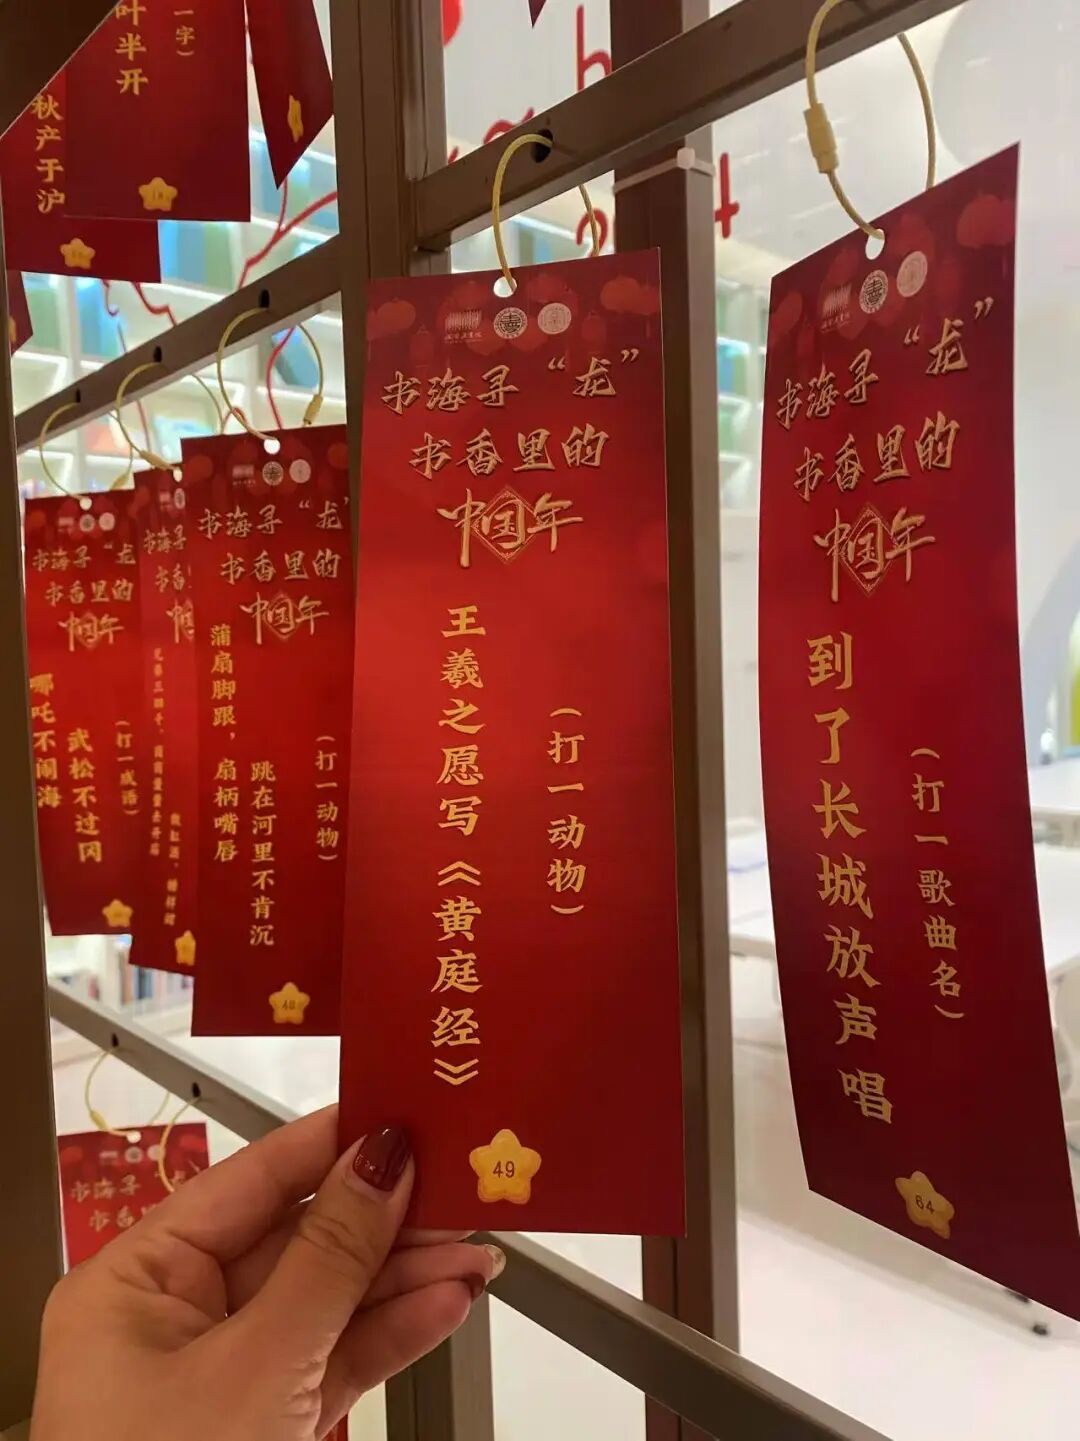 叶半开
一字）
秋产于沪
书海寻“龙”
书香里的
中国年
哪吒不闹海
武松不过冈
（打一成语）
书海寻
书香里的
中国
书海寻“龙”
书香里的
中国年
蒲扇脚跟，扇柄嘴唇
跳在河里不肯沉
（打一动物）
48
书海寻“龙”
书香里的
中国年
王羲之愿写《黄庭经》
（打一动物）
49
书海寻“龙”
书香里的
中国年
到了长城放声唱
（打一歌曲名）
64
书海寻
书香